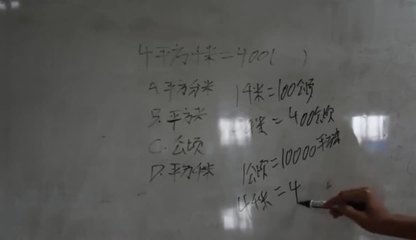 4平方千米=400( )
A.平方分米
B.平方米
C.公顷
D.平方千米
1千米=100公顷
千米=400公顷
1公顷=10000平方米
4千米=4